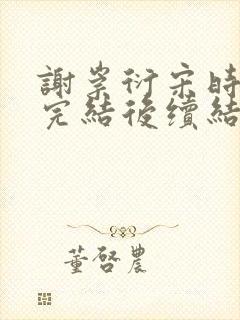 謝崇衍宋時
完結後續結
董啓農